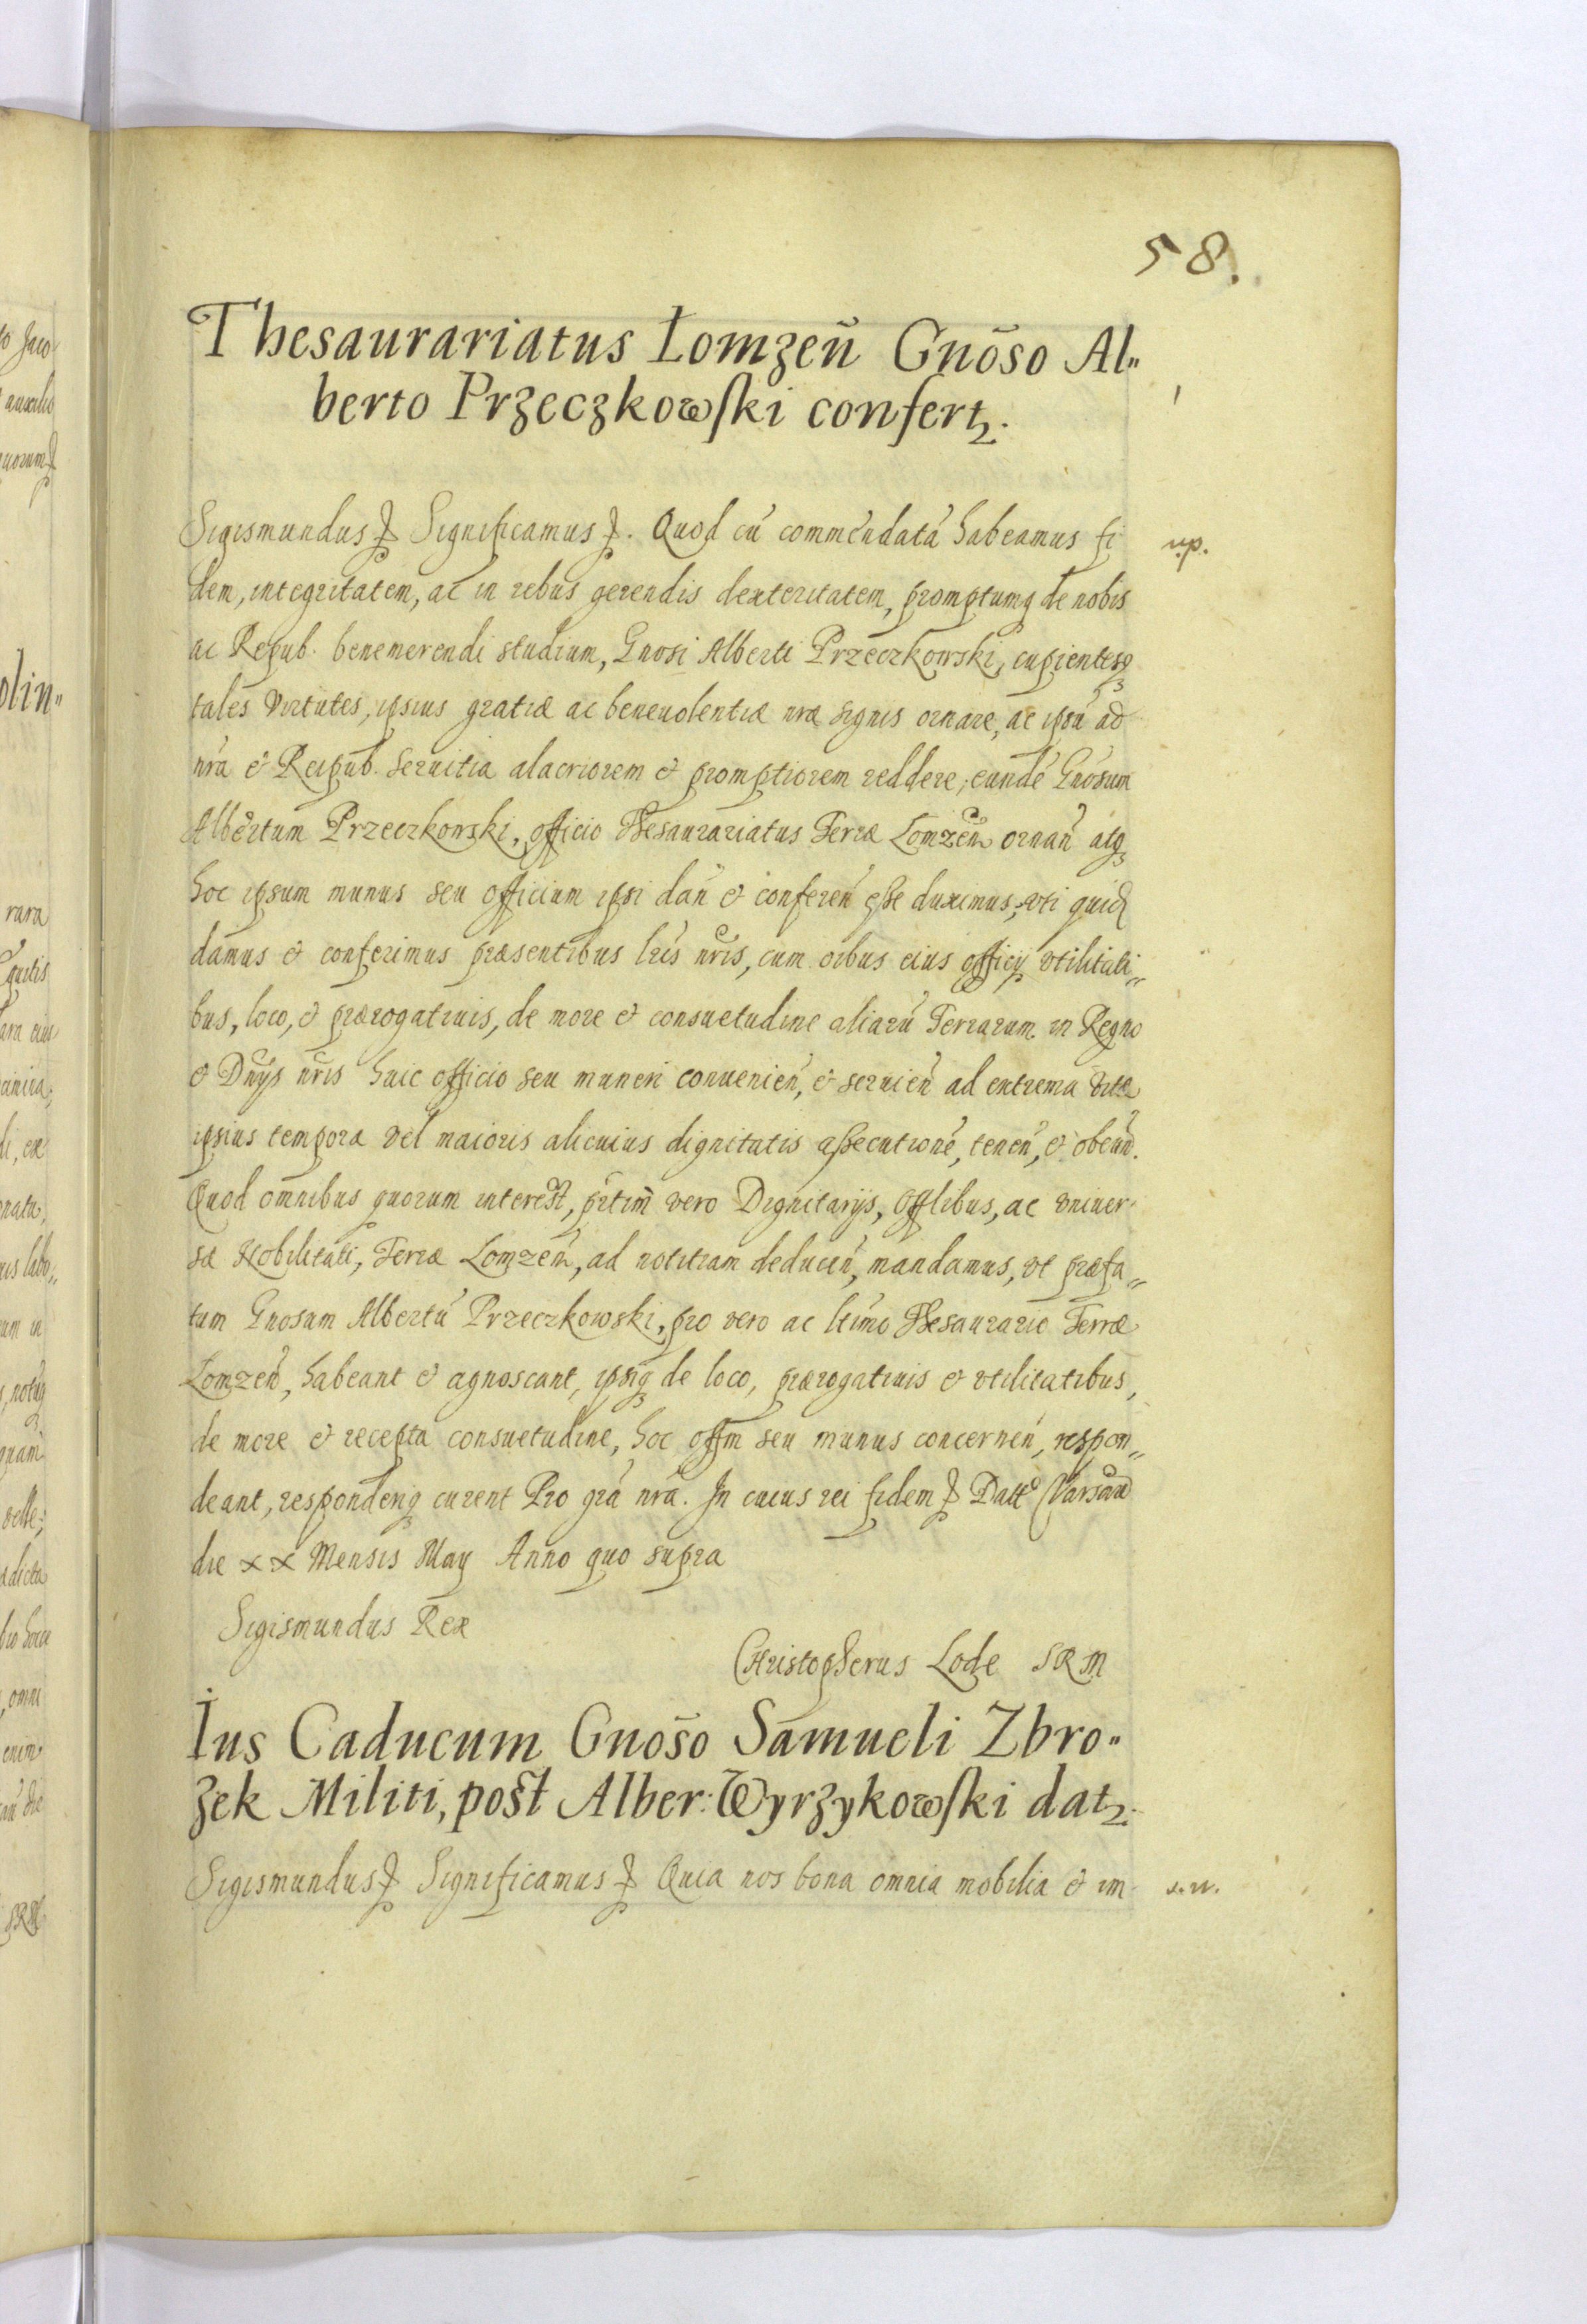 58.
Thesaurariatus Lomzeñ Gnõso Al„
berto Przeczkowski confert2.
Sigismundus Significamus. Quod cū commēndatā habeamus fi
np.
dem, integritatem, ac in rebus gerendis dexteritatem, promptumq de nobis
ac Repub. benemerendi studium, Gnosi Alberti Przeczkowski, cupientesq
tales virtutes, ipsius gratiæ ac beneuolentiæ nræ signis ornare, ac ipsū ad
nrā & Reipub. seruitia alacriorem & promptiorem reddere, eundē Gnōsum
Albertum Przeczkowski, officio Thesaurariatus Terræ Lomzeñ ornañ atq
hoc ipsum munus seu officium ipsi dañ & confereñ esse duximus, vti quid
damus & conferimus præsentibus lris nris, cum oibus eius officij vtilitati„
bus, loco, & prærogatiuis, de more & consuetudine aliarū Terrarum in Regno
& Dnijs nris huic officio seu muneri conuenieñ, & seruieñ ad extrema vitæ
ipsius tempora vel maioris alicuius dignitatis assecutionē, teneñ, & obeuñ.
Quod omnibus quorum interest, prtim̄ vero Dignitarijs, Offlibus, ac vniuer
sæ Nobilitati, Terræ Lomzeñ, ad notitiam deduceñ, mandamus, vt præfa„
tum Gnosum Albertū Przeczkowski, pro vero ac ltimo Thesaurario Terræ
Lomzeñ, habeant & agnoscant, ipsiq de loco, prærogatiuis & vtilitatibus,
de more & recepta consuetudine, hoc offm seu munus concerneñ, respon„
deant, responderiq curent Pro grā nrā. In cuius rei fidem Datt Varsau
die xx Mensis May Anno quo supra
Sigismundus Rex
Christopherus Lode SRM
Ius Caducum Gnõso Samueli Zbro„
zek Militi, post Alber: Wyrzykowski dat2.
Sigismundus Significamus Quia nos bona omnia mobilia & im